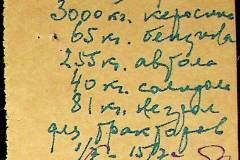 3000 кг. керосина
65 кг. бензина
255 кг. автола
40 кг. солидола
81 кг. нигрол
для тракторов